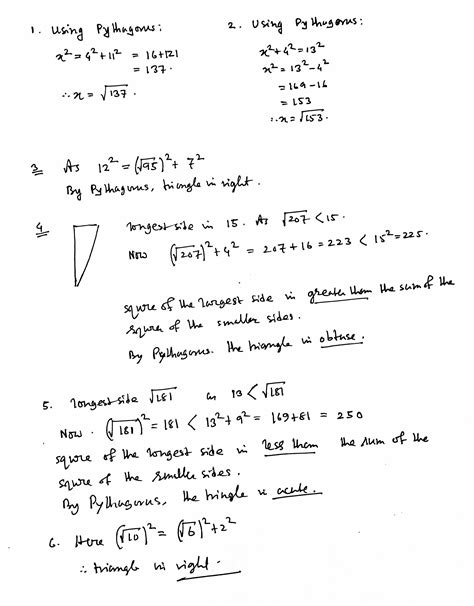 1. Using Pythagorus:
x² = 4² + 11² = 16+121
= 137.
∴ x = √137.
2. Using Pythagorus:
x² + 4² = 13²
x² = 13² - 4²
= 169 - 16
= 153
∴ x = √153.
3 As 12² = (√95)² + 7²
By Pythagorus, triangle is right.
4 longest side is 15. As √207 < 15.
Now (√207)² + 4² = 207 + 16 = 223 < 15² = 225.
squre of the largest side is greater than the sum of the
squre of the smaller sides.
By Pythagorus. the triangle is obtuse.
5. longest side √181 as 13 < √181
Now. (√181)² = 181 < 13² + 9² = 169 + 81 = 250
squre of the longest side is less than the sum of the
squre of the smaller sides.
By Pythagorus, the tringle is acute.
6. Here (√10)² = (√6)² + 2²
∴ triangle is right.